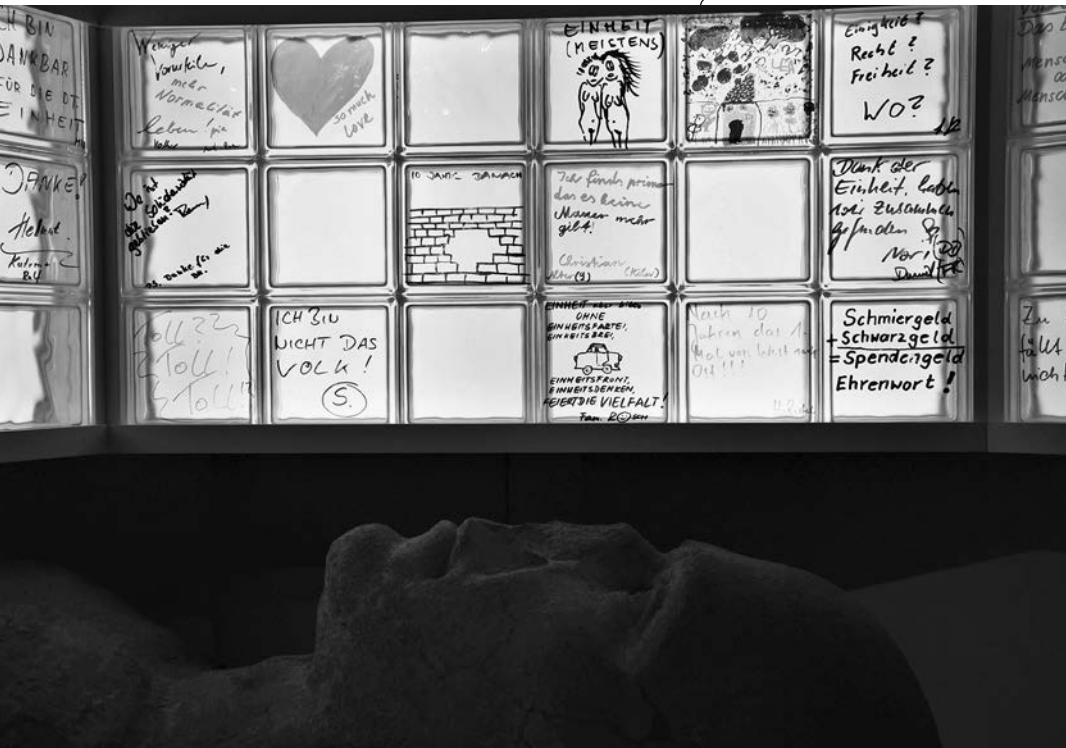 CH BIN
DANKBAR
FÜR DIE DT.
EINHEIT
Weniger
Vorurteile,
mehr
Normalität
leben!
so much
Love
EINHEIT
(MEISTENS)
Einigkeit?
Recht?
Freiheit?
WO?
DANKE!
Helmut
Wo ist
die Solidarität
geblieben?
10 JAHRE DANACH
Ich finds prima
das es keine
Mauer mehr
gibt!
Christian
Alter (9)
Dank der
Einheit, haben
wir zusammen
gefunden
Daniel
Toll??
Toll!
Toll!?
ICH BIN
NICHT DAS
VOLK!
S.
EINHEIT aber bitte
OHNE
EINHEITSPARTEI,
EINHEITSBREI,
EINHEITSFRONT,
EINHEITSDENKEN,
FEIERT DIE VIELFALT!
Nach 10
Jahren das 1.
Mal von West nach
Ost!!!
Schmiergeld
+ Schwarzgeld
= Spendengeld
Ehrenwort!
Zu
fällt
nicht